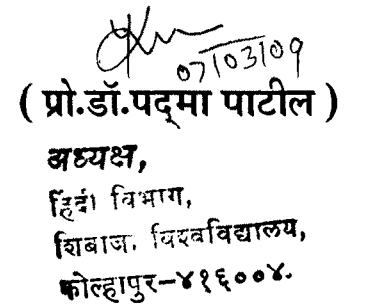 07/03/09
( प्रो.डॉ.पद्‌मा पाटील )
अध्यक्ष,
हिंदी विभाग,
शिबाज. विश्वविद्यालय,
कोल्हापुर-४१६००४.